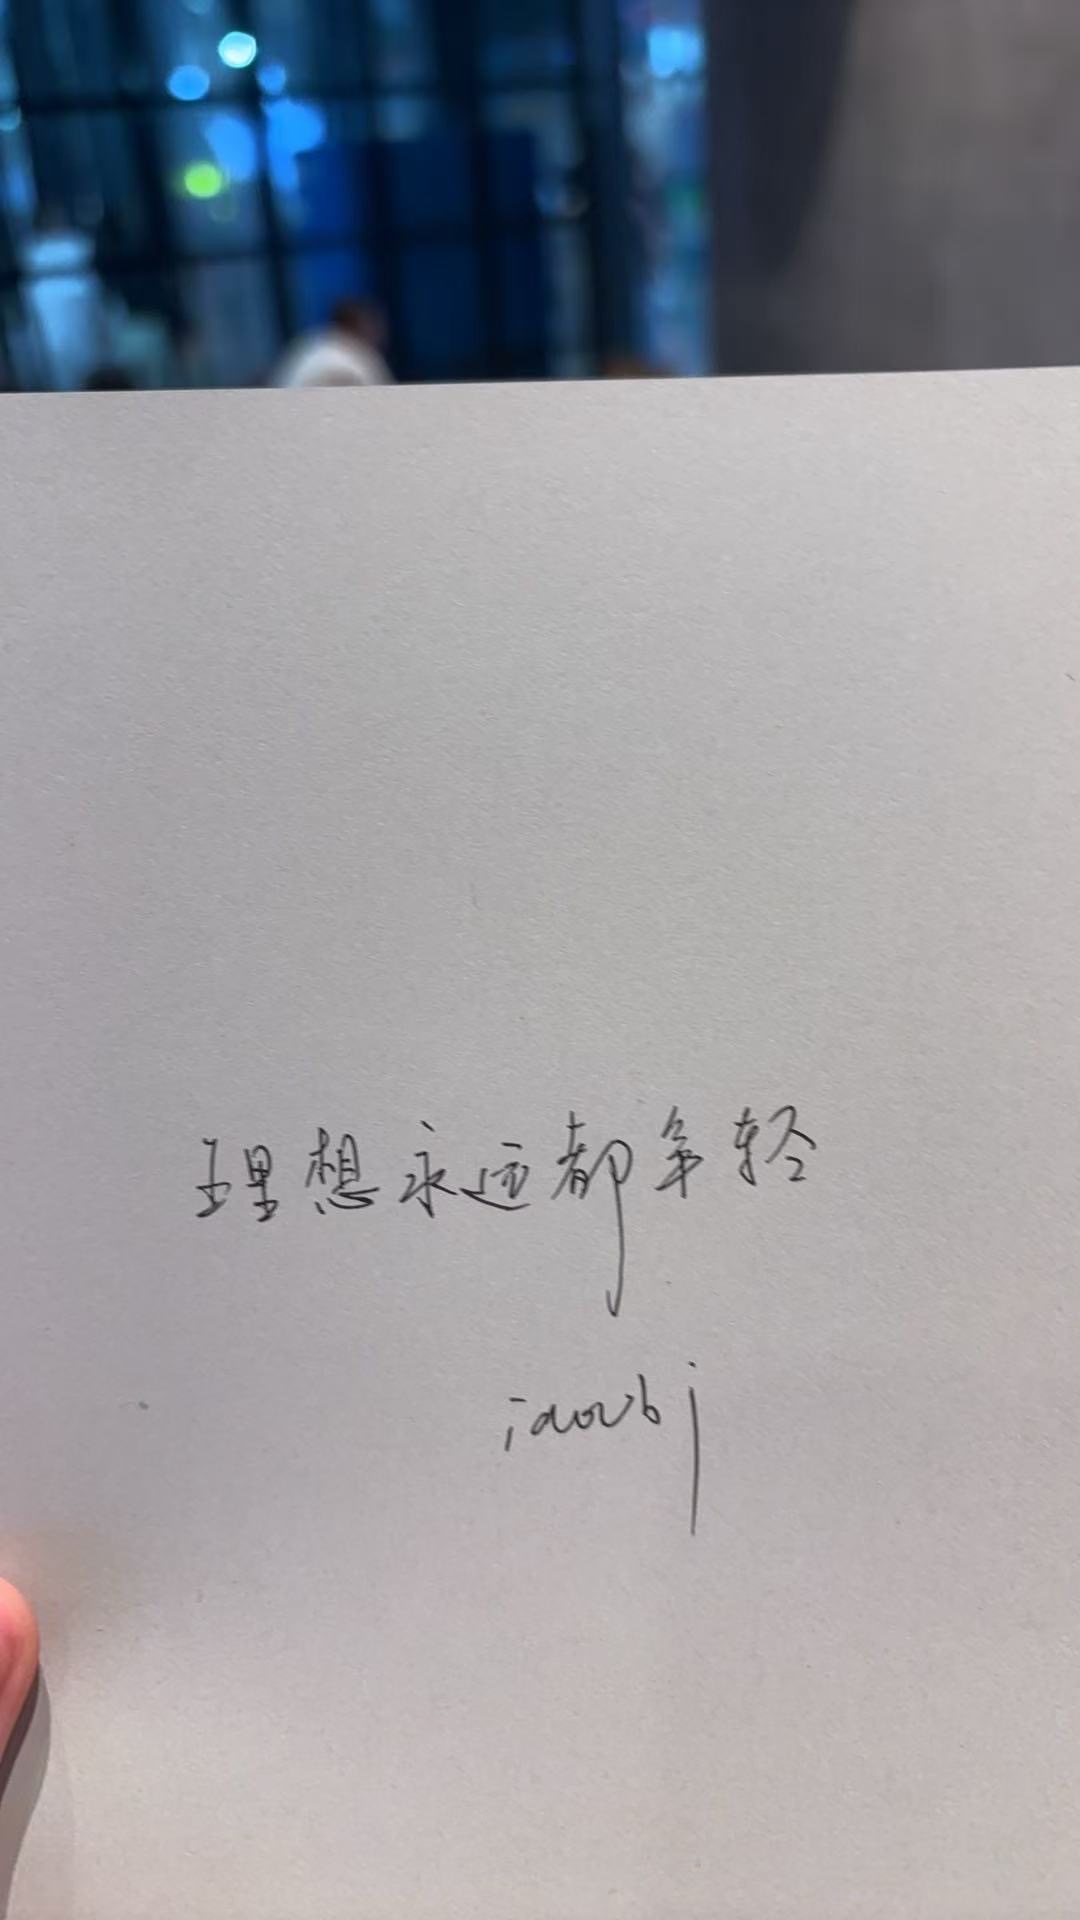 理想永远都年轻